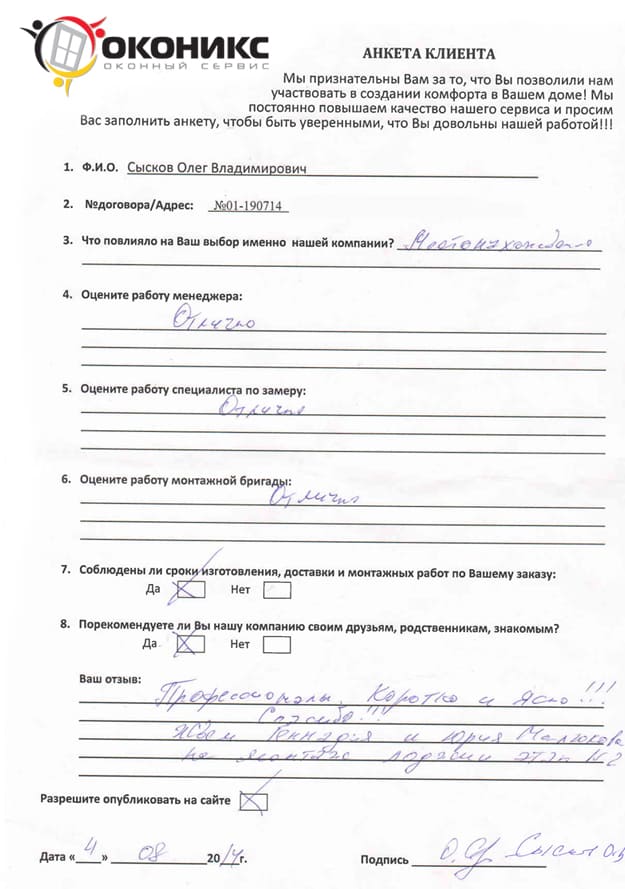 ОКОНИКС
ОКОННЫЙ СЕРВИС
АНКЕТА КЛИЕНТА
Мы признательны Вам за то, что Вы позволили нам
участвовать в создании комфорта в Вашем доме! Мы
постоянно повышаем качество нашего сервиса и просим
Вас заполнить анкету, чтобы быть уверенными, что Вы довольны нашей работой!!!
1. Ф.И.О. Сысков Олег Владимирович
2. №договора/Адрес: №01-190714
3. Что повлияло на Ваш выбор именно нашей компании? Местонахождение
4. Оцените работу менеджера:
Отлично
5. Оцените работу специалиста по замеру:
Отлично
6. Оцените работу монтажной бригады:
Отлично
7. Соблюдены ли сроки изготовления, доставки и монтажных работ по Вашему заказу:
Да Нет
8. Порекомендуете ли Вы нашу компанию своим друзьям, родственникам, знакомым?
Да Нет
Ваш отзыв:
Профессионалы. Коротко и Ясно!!!
Спасибо!!!
Ждем Геннадия и Юрия Малюкова
на монтаж лоджии этап №2
Разрешите опубликовать на сайте
Дата «4» 08 2014г. Подпись